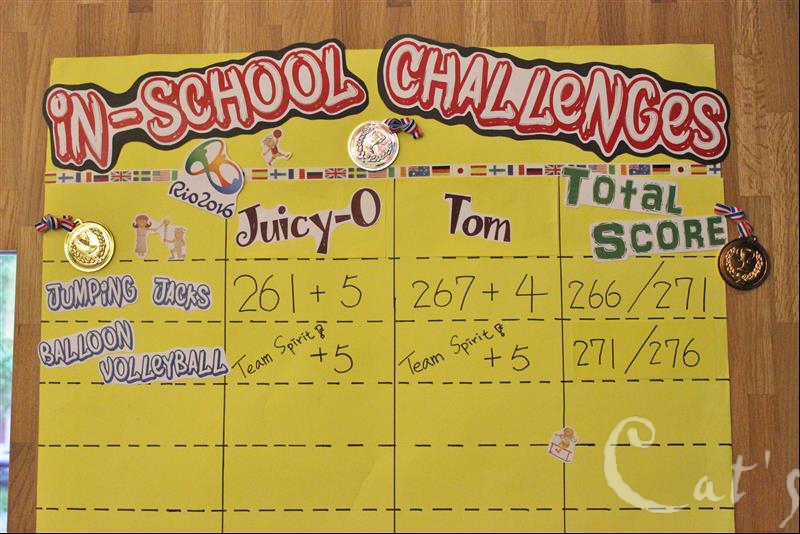 IN-SCHOOL CHALLENGES
RiO2016
Juicy-O
Tom
TOtal SCORE
JUMPiNG JACKS
261 + 5
267 + 4
266/271
BALLOON VOLLEYBALL
Team Spirit +5
Team Spirit +5
271/276
Cat's